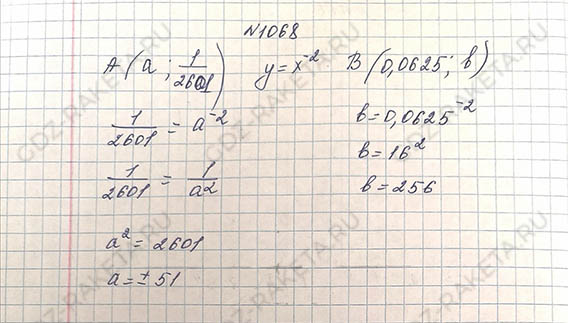 N1068
A (a ; 1/2601) y = x⁻² B (0,0625; b)
1/2601 = a⁻²
1/2601 = 1/a²
a² = 2601
a = ± 51
b = 0,0625⁻²
b = 16²
b = 256
GDZ-RAKETA.RU
GDZ-RAKETA.RU
GDZ-RAKETA.RU
GDZ-RAKETA.RU